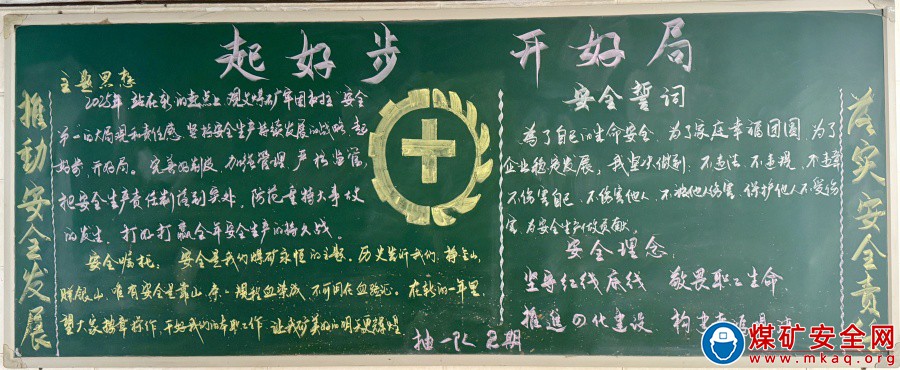 起好步 开好局
推動安全发展
主题思想
2025年 站在新的起点上 观文煤矿牢固树立"安全
第一"的大局观和责任感，坚持安全生产持续发展的战略 起
好步 开好局。完善的制度，加强管理，严格监管，
把安全生产责任制落到实处，防范重特大事故
的发生，打好打赢全年安全生产的持久战。
安全嘱托： 安全是我们煤矿永恒的主题，历史告诉我们，挣金山，
赚银山，唯有安全是靠山 条条规程血染成，不可用在血验证。在新的一年里，
望大家按章操作 干好我们的本职工作 让我矿美的明天更辉煌
安全誓词
为了自己的生命安全，为了家庭幸福团圆，为了
企业稳定发展，我坚决做到：不违法、不违规、不违章
不伤害自己、不伤害他人、不被他人伤害、保护他人不受伤
害，为安全生产做贡献。
安全理念
坚守红线底线 敬畏职工生命
推進四化建设 构建
安全责
抽一队 2期
煤矿安全网
www.mkaq.org